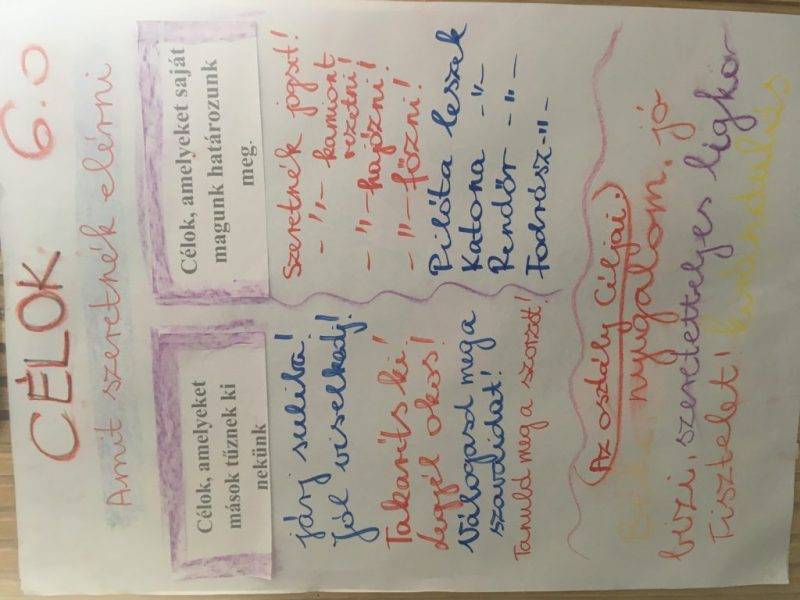 CÉLOK 6.o
Amit szeretnék elérni
Célok, amelyeket
mások tűznek ki
nekünk
Járj suliba!
Jól viselkedj!
Takaríts ki!
Legyél okos!
Válogasd meg a
szavaidat!
Tanuld meg a szorzót!
Célok, amelyeket saját
magunk határozunk
meg.
Szeretnék jogsit!
-"- kamiont
vezetni!
-"- hajózni!
-"- főzni!
Pilóta leszek
Katona -"-
Rendőr -"-
Fodrász -"-
Az osztály céljai:
nyugalom, jó
bizi, szeretetteljes légkör
Tisztelet! kirándulás